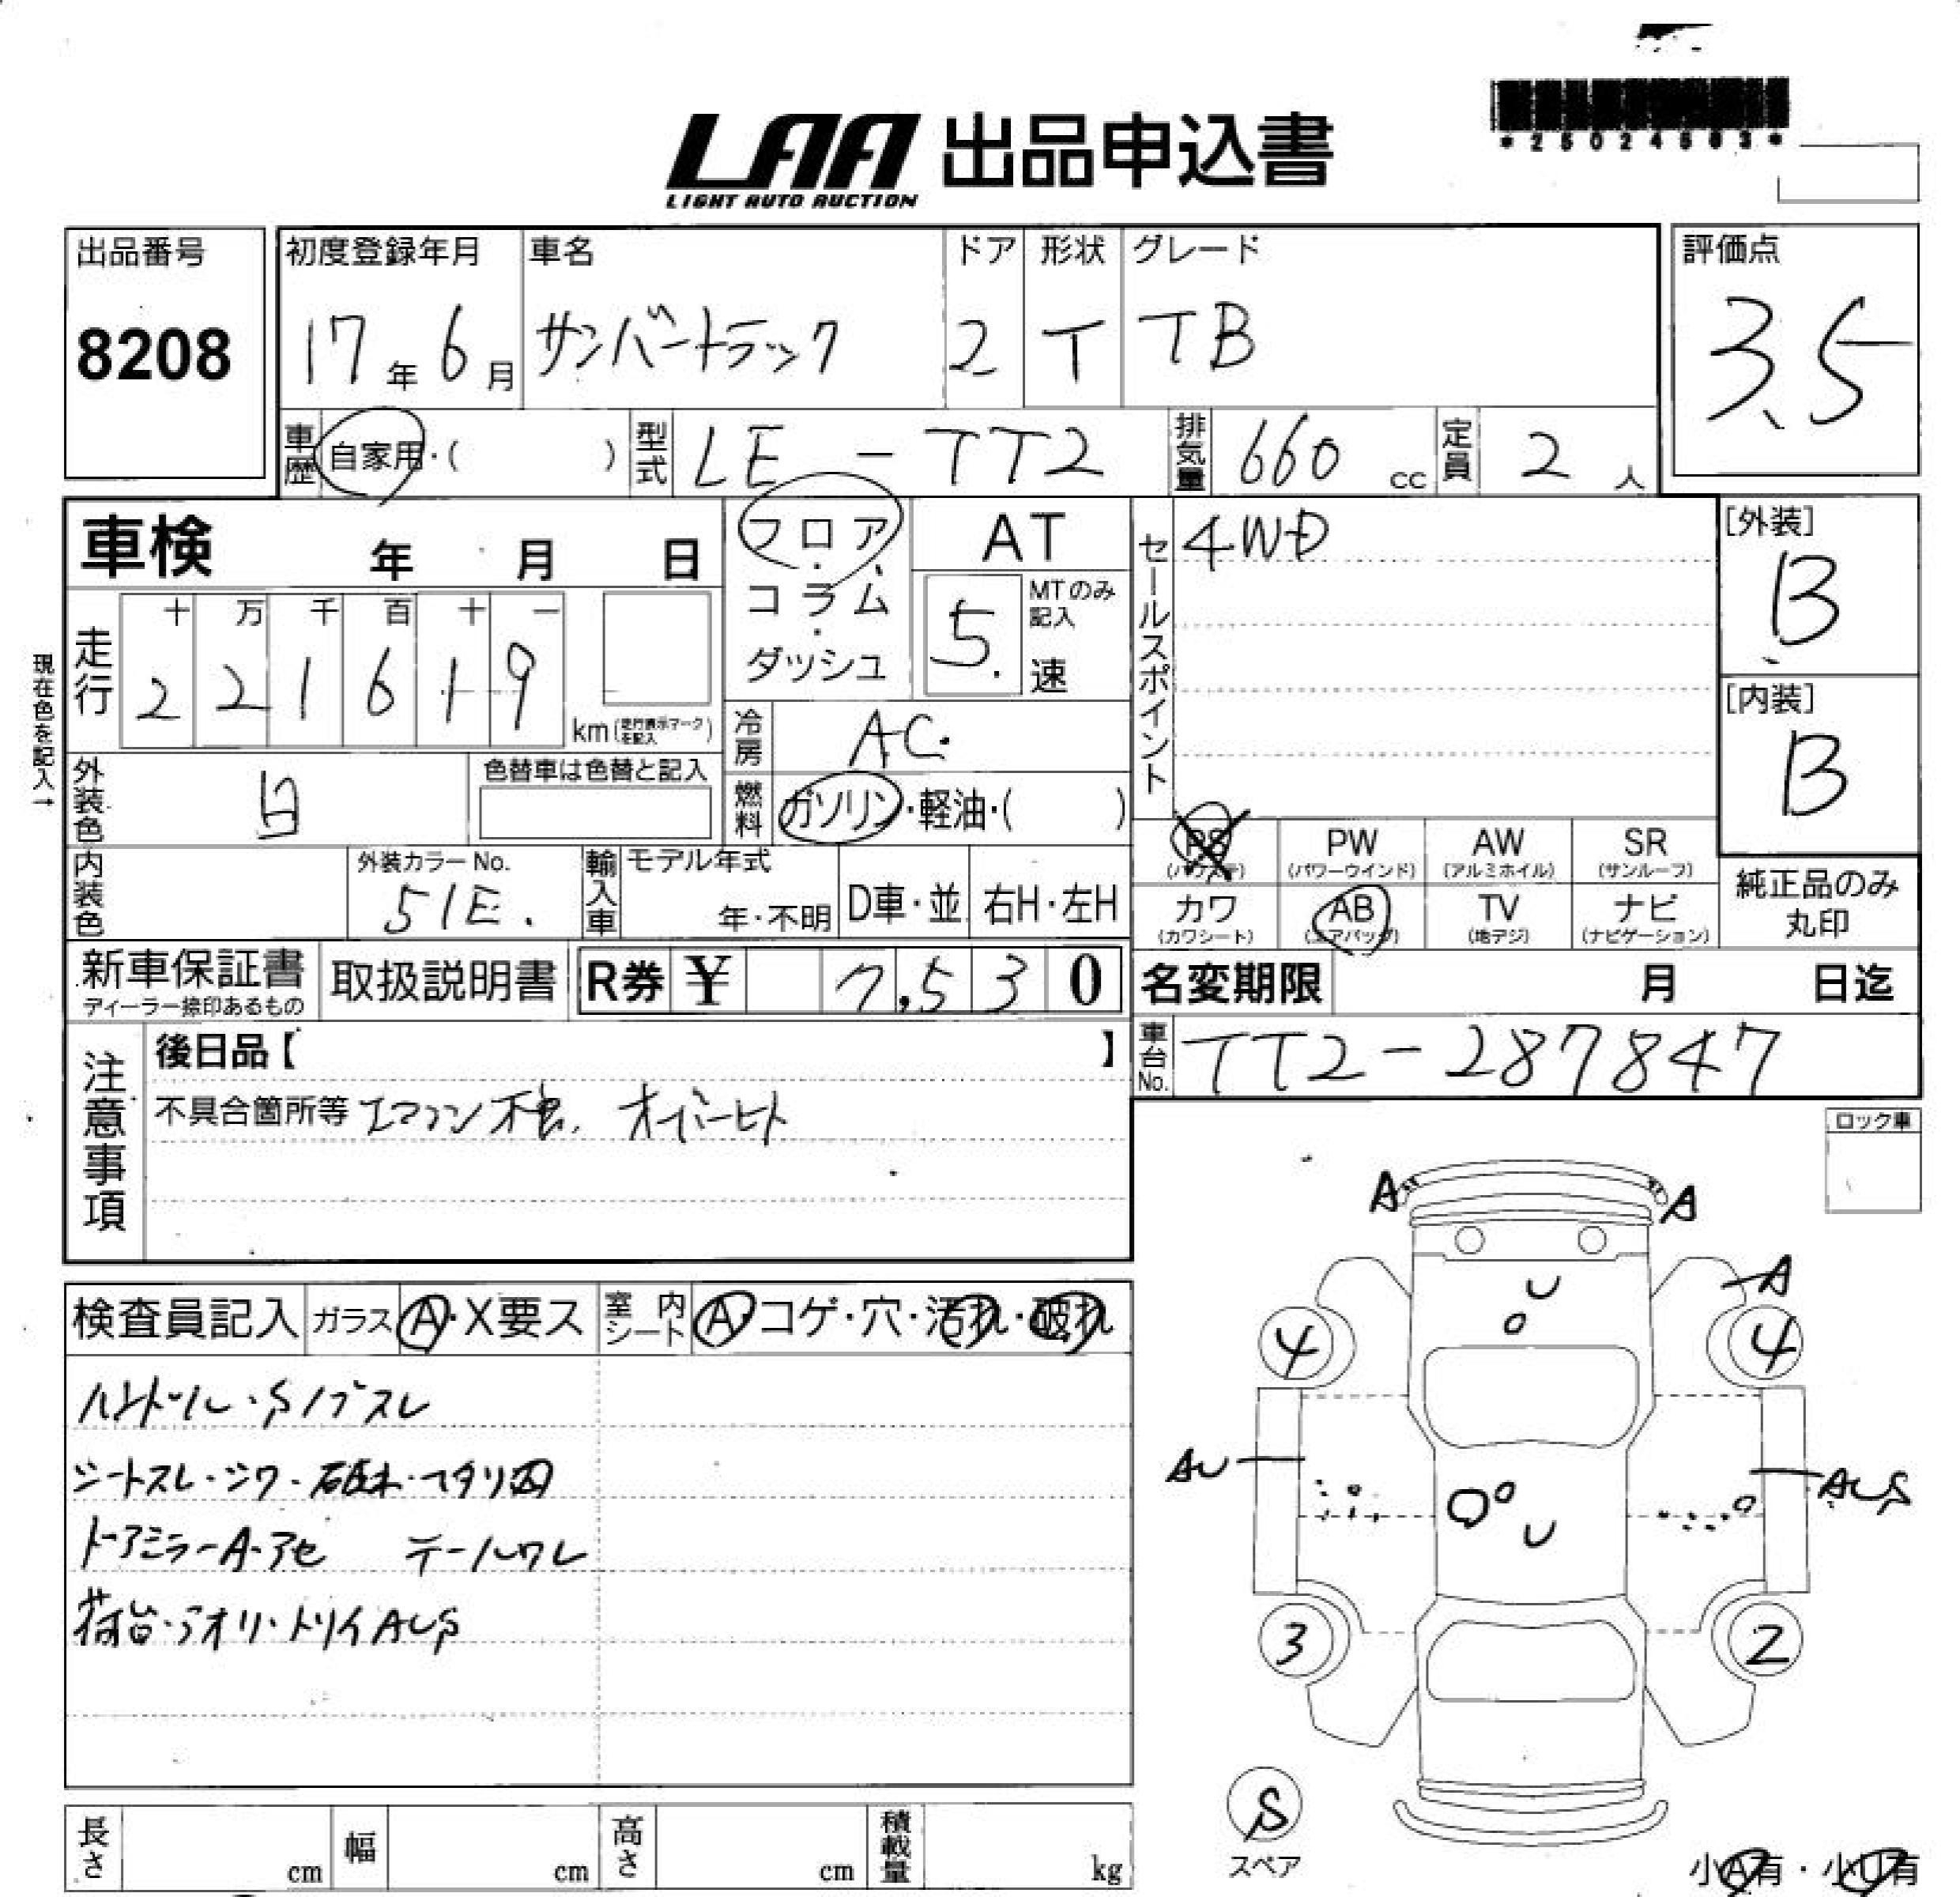 *25024583*
LAA 出品申込書
LIGHT AUTO AUCTION
出品番号
8208
初度登録年月 車名 ドア 形状 グレード
17年 6月 サンバートラック 2 T TB
評価点
3.5
車歴 自家用・( ) 型式 LE-TT2 排気量 660 cc 定員 2 人
車検 年 月 日
フロア・コラム・ダッシュ
AT
5. 速 MTのみ記入
セールスポイント
4WD
[外装]
B
[内装]
B
現在色を記入→
走行 十 万 千 百 十 一
2 2 1 6 1 9
km (走行表示マークを記入)
冷房 AC.
燃料 ガソリン・軽油・( )
外装色 白 色替車は色替と記入
内装色 外装カラーNo. 51E.
輸入車 モデル年式 年・不明 D車・並 右H・左H
PS (パワステ) PW (パワーウインド) AW (アルミホイル) SR (サンルーフ)
カワ (カワシート) AB (エアバッグ) TV (地デジ) ナビ (ナビゲーション)
純正品のみ
丸印
新車保証書 取扱説明書 R券 ¥ 7,530
ディーラー捺印あるもの
名変期限 月 日迄
車台No. TT2-287847
注意事項
後日品【 】
不具合箇所等 エアコン不良. オーバーヒート
ロック車
検査員記入 ガラス A・X要ス 室内シート A・コゲ・穴・汚れ・破れ
ハンドル・Sノブスレ
シートスレ・シワ・破れ・ヘタリ凹
ドアミラーA・アセ テールワレ
荷台・アオリ・トリイAUS
A
A
A
U
4
4
AU
U
AUS
3
2
S
スペア
長さ cm 幅 cm 高さ cm 積載量 kg
小A有・小U有